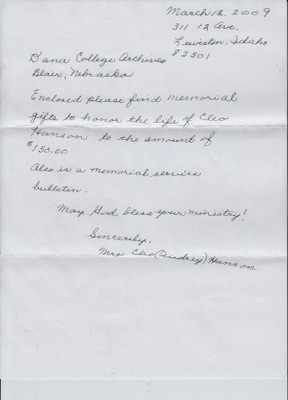 March 12, 2009
311 12 Ave.
Lewiston, Idaho
83501
Dana College Archives
Blair, Nebraska
Enclosed please find memorial
gifts to honor the life of Cleo
Hanson to the amount of
$150.00
Also is a memorial service
bulletin.
May God bless your ministry!
Sincerely,
Mrs Cleo (Audrey) Hanson